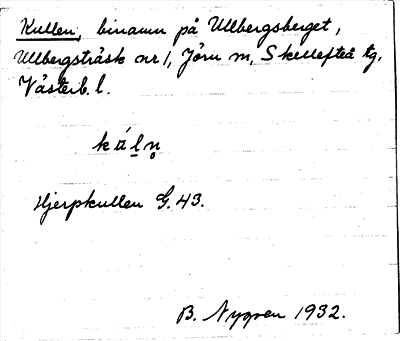 Kullen, binamn på Ullbergsberget,
Ullbergsträsk nr 1, Jörn sn, Skellefteå tg,
Västerb. l.
Hjerpkullen G. 43.
B. Nygren 1932.